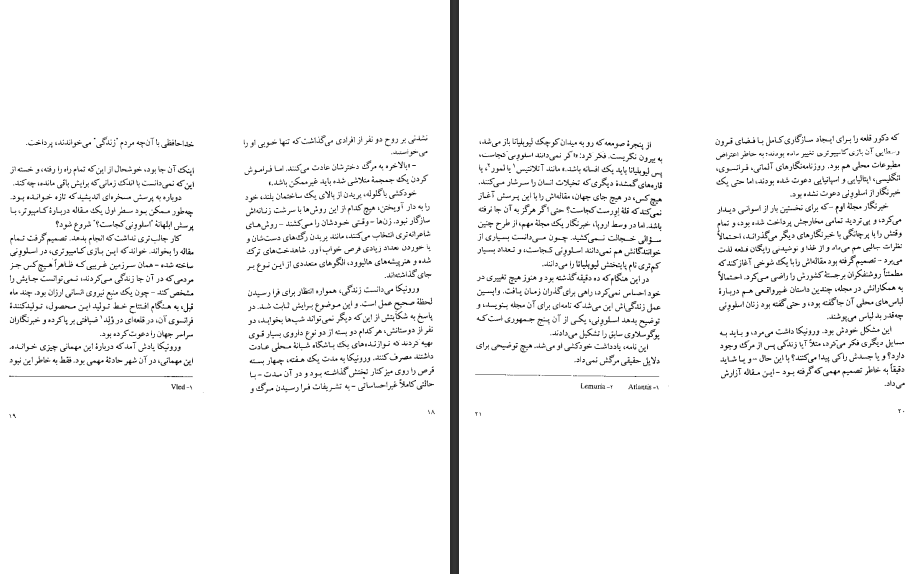 نشدنی بر روح دو نفر از افرادی می‌گذاشت که تنها خوبی او را
می‌خواستند.
– «بالاخره به مرگ دخترشان عادت می‌کنند. اما فراموش
کردن یک جمجمهٔ متلاشی شده باید غیرممکن باشد.»
خودکشی باگلوله، پریدن از بالای یک ساختمان بلند، خود
را به دار آویختن، هیچ‌کدام از این روش‌ها با سرشت زنانه‌اش
سازگار نبود. زن‌ها – وقتی خودشان را می‌کشند – روش‌های
شاعرانه‌تری انتخاب می‌کنند، مانند بریدن رگ‌های دست‌شان و
یا خوردن تعداد زیادی قرص خواب‌آور. شاهدخت‌های ترک
شده و هنرپیشه‌های هالیوود، الگوهای متعددی از ایـن نـوع بـر
جای گذاشته‌اند.
ورونیکا می‌دانست زندگی، همواره انتظار برای فرا رسیدن
لحظهٔ صحیح عمل است. و این موضوع برایش ثابت شد. در
پاسخ به شکایتش از این که دیگر نمی‌تواند شب‌ها بخوابد، دو
نفر از دوستانش، هر کدام دو بسته از دو نوع داروی بسیار قوی
تهیه کردند که نوازنده‌های یک باشگاه شبانهٔ محلی عادت
داشتند مصرف کنند. ورونیکا به مدت یک هفته، چهار بسته
قرص را روی میز کنار تختش گذاشته بود و در آن مدت – با
حالتی کاملاً غیراحساساتی – به تشریفات فرا رسیدن مرگ و
۱۸
خداحافظی با آن‌چه مردم "زندگی" می‌خواندند، پرداخت.
اینک آن جا بود، خوشحال از این‌که تمام راه را رفته، و خسته از
این‌که نمی‌دانست با اندک زمانی که برایش باقی مانده، چه کند.
دوباره به پرسش مسخره‌ای اندیشید که تازه خوانده بود.
چه‌طور ممکن بود سطر اول یک مقاله دربارهٔ کامپیوتر، با
پرسش ابلهانهٔ "اسلوونی کجاست؟" شروع شود؟
کار جالب‌تری نداشت که انجام بدهد. تصمیم گرفت تمام
مقاله را بخواند. خواند که این بازی کامپیوتری، در اسلوونی
ساخته شده – همان سرزمین غریبی که ظاهراً هیچ‌کس جز
مردمی که در آن جا زندگی می‌کردند، نمی‌توانست جایش را
مشخص کند – چون یک منبع نیروی انسانی ارزان بود. چند ماه
قبل، به هنگام افتتاح خط تولید این محصول، تولیدکنندهٔ
فرانسوی آن، در قلعه‌ای در ولد۱ ضیافتی برپا کرده و خبرنگاران
سراسر جهان را دعوت کرده بود.
ورونیکا یادش آمد که دربارهٔ این مهمانی چیزی خوانده.
این مهمانی، در آن شهر حادثهٔ مهمی بود. فقط به خاطر این نبود
۱– Vled
۱۹
که دکور قلعه را برای ایجاد سازگاری کامل با فضای قرون
وسطایی آن بازی کامپیوتری تغییر داده بودند؛ به خاطر اعتراض
مطبوعات محلی هم بود. روزنامه‌نگارهای آلمانی، فرانسوی،
انگلیسی، ایتالیایی و اسپانیایی دعوت شده بودند، اما حتی یک
خبرنگار از اسلوونی دعوت نشده بود.
خبرنگار مجلهٔ اوم – که برای نخستین بار از اسلوانی دیدار
می‌کرد، و بی‌تردید تمامی مخارجش پرداخت شده بود، و تمام
وقتش را با پرچانگی با خبرنگارهای دیگر می‌گذراند، احتمالاً
نظرات جالبی هم می‌داد و از غذا و نوشیدنی رایگان قلعه لذت
می‌برد – تصمیم گرفته بود مقاله‌اش را با یک شوخی آغاز کند که
مطمئناً روشنفکران برجستهٔ کشورش را راضی می‌کرد. احتمالاً
به همکارانش در مجله، چندین داستان غیرواقعی هم دربارهٔ
لباس‌های محلی آن جا گفته بود، و حتی گفته بود زنان اسلوونی
چه‌قدر بد لباس می‌پوشند.
این مشکل خودش بود. ورونیکا داشت می‌مرد، و باید به
مسایل دیگری فکر می‌کرد، مثلاً آیا زندگی پس از مرگ وجود
دارد؟ و یا جسدش را کی پیدا می‌کنند؟ با این حال – و یا شاید
دقیقاً به خاطر تصمیم مهمی که گرفته بود – این مقاله آزارش
می‌داد.
۲۰
از پنجرهٔ صومعه که رو به میدان کوچک لیوبلیانا باز می‌شد،
به بیرون نگریست. فکر کرد: «اگر نمی‌دانند اسلوونی کجاست،
پس لیوبلیانا باید یک افسانه باشد.» مانند آتلانتیس۱ یا لمور۲، یا
قاره‌های گمشدهٔ دیگری که تخیلات انسان را سرشار می‌کنند.
هیچ‌کس، در هیچ جای جهان، مقاله‌اش را با این پرسش آغاز
نمی‌کند که قلهٔ اورست کجاست؟ حتی اگر هرگز به آن جا نرفته
باشد. اما در وسط اروپا، خبرنگار یک مجلهٔ مهم، از طرح چنین
سؤالی خجالت نمی‌کشید. چون می‌دانست بسیاری از
خوانندگانش هم نمی‌دانند اسلوونی کجاست، و تعداد بسیار
کم‌تری نام پایتختش لیوبلیانا را می‌دانند.
در این هنگام که ده دقیقه گذشته بود و هنوز هیچ تغییری در
خود احساس نمی‌کرد، راهی برای گذران زمان یافت. واپسین
عمل زندگی‌اش این می‌شد که نامه‌ای برای آن مجله بنویسد، و
توضیح بدهد اسلوونی، یکی از آن پنج جمهوری است که
یوگوسلاوی سابق را تشکیل می‌دادند.
این نامه، یادداشت خودکشی او می‌شد. هیچ توضیحی برای
دلایل حقیقی مرگش نمی‌داد.
۱– Atlantis ۲– Lemuria
۲۱